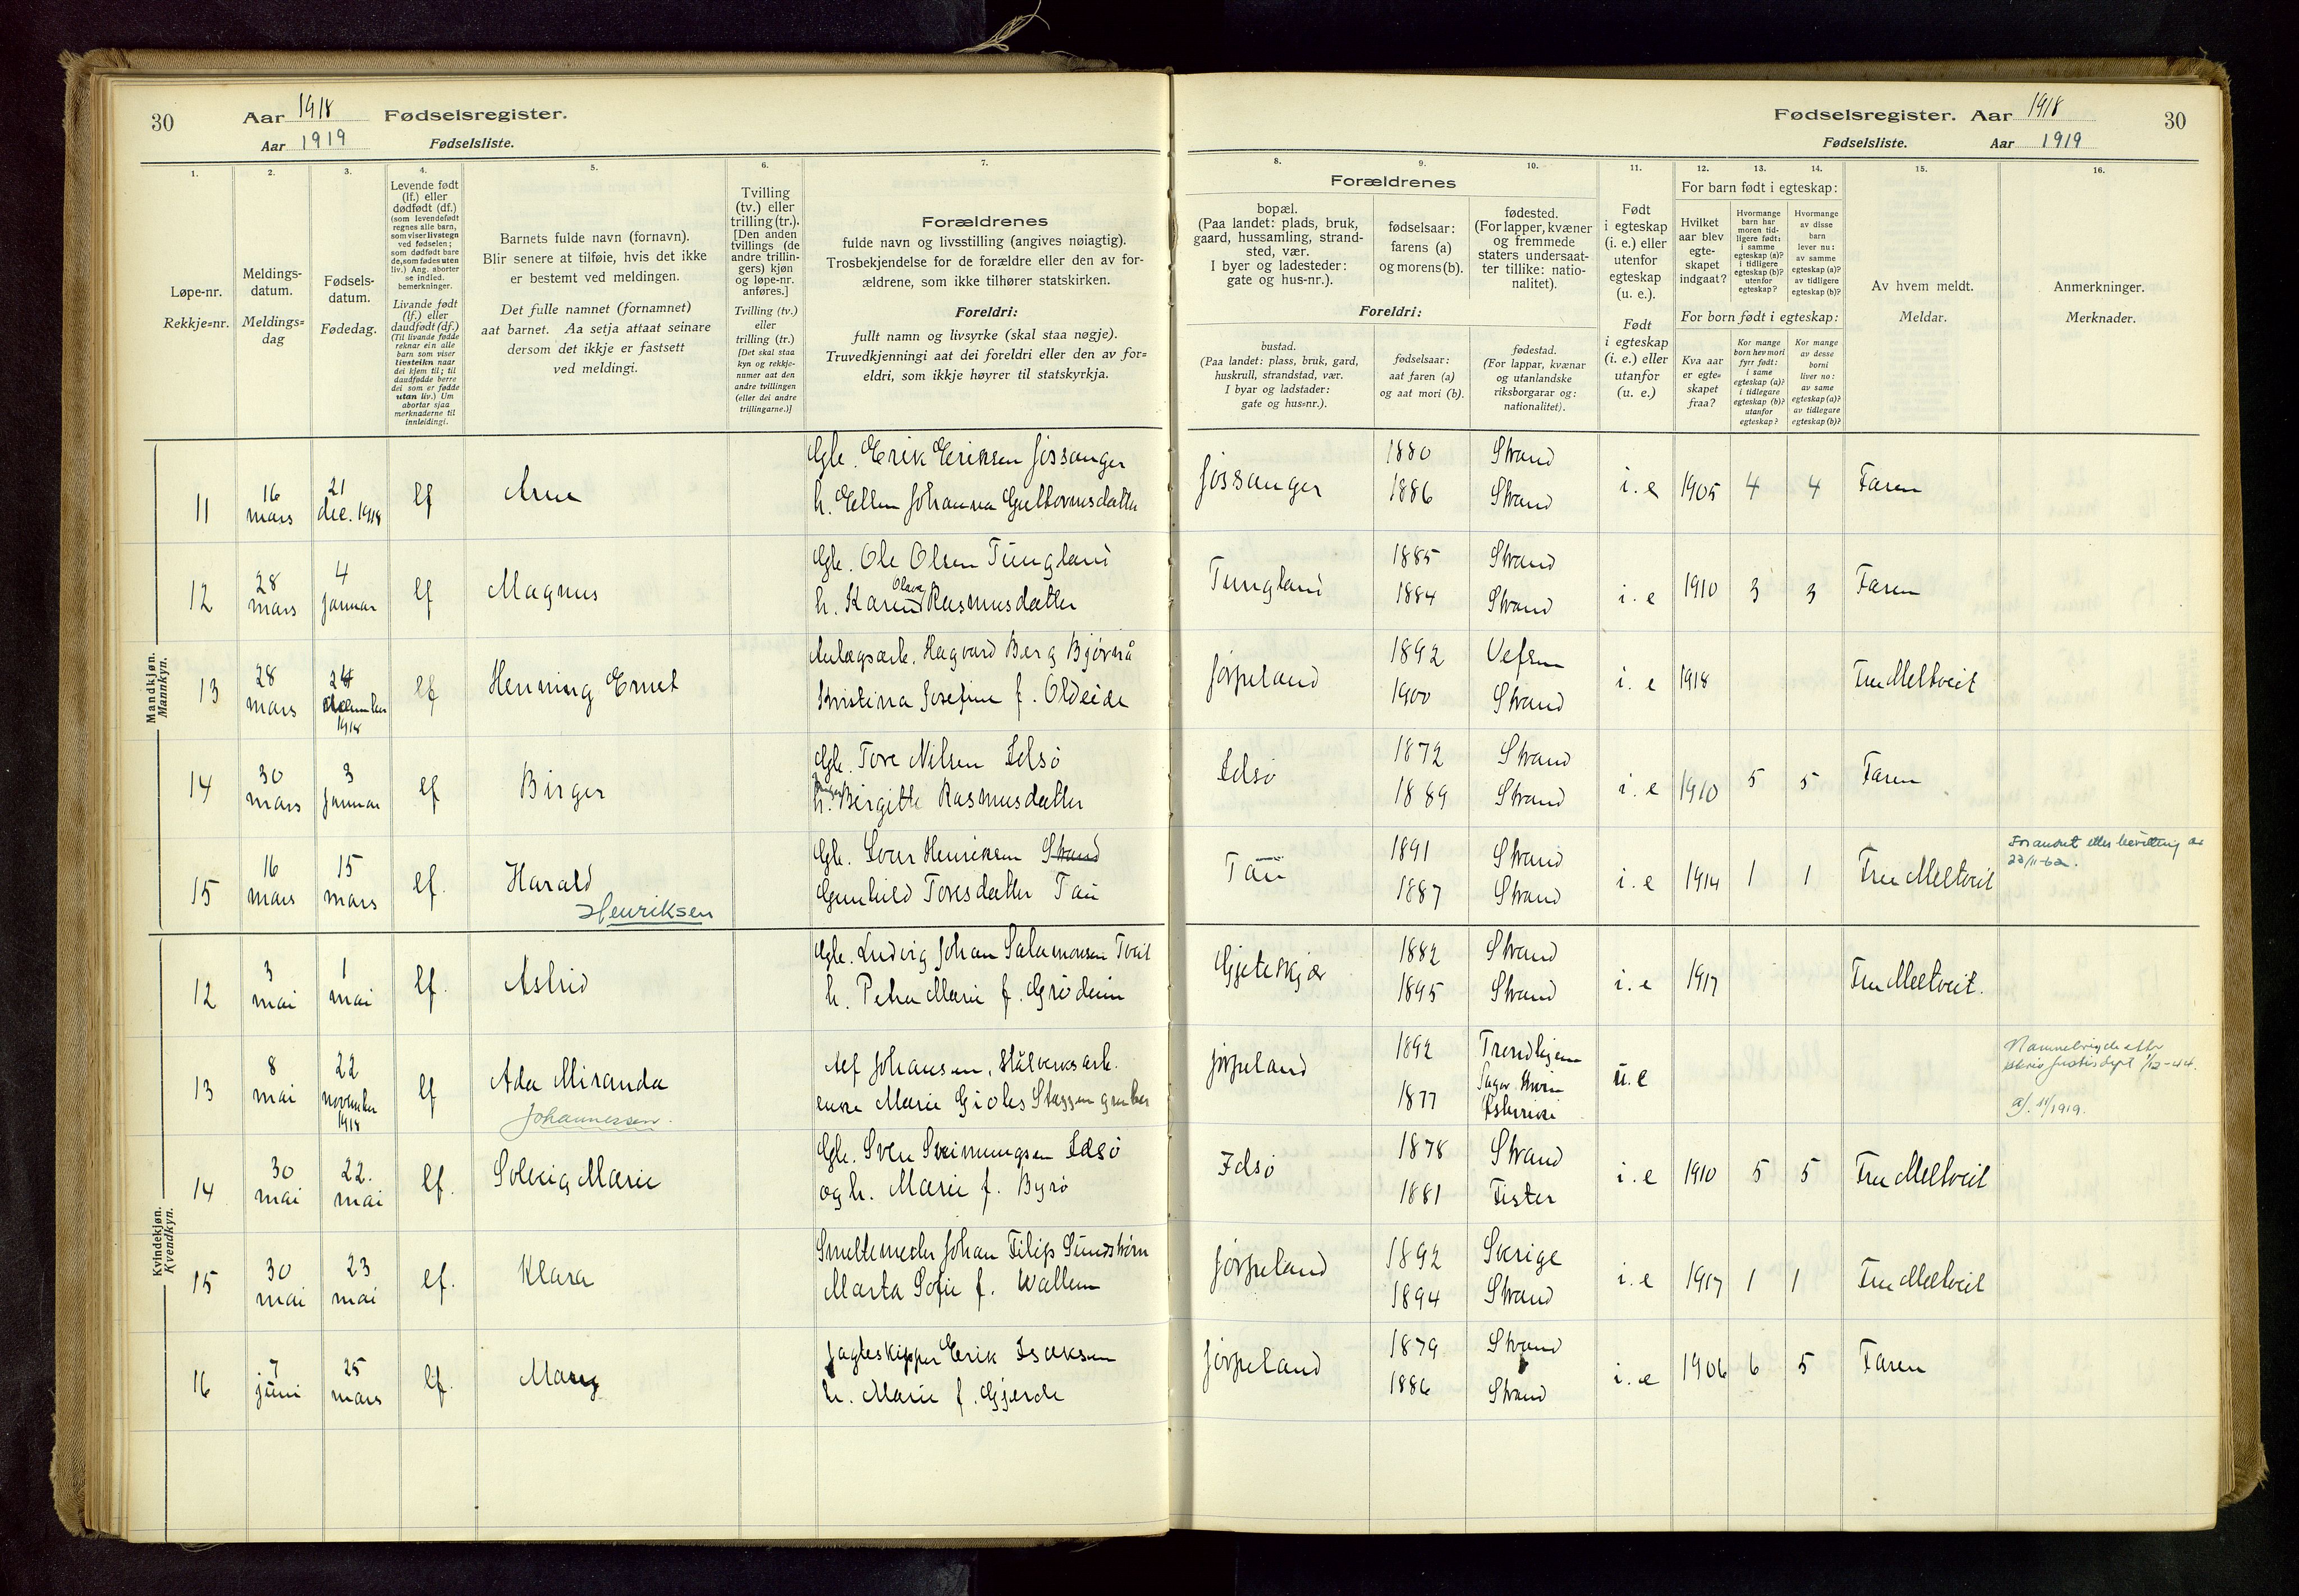 30
Aar 1918 Fødselsregister.
Aar 1919 Fødselsliste.
1. 2. 3. 4. 5. 6. 7.
Løpe-nr.
Rekkje=nr.
Meldings-
datum.
Meldings=
dag
Fødsels-
datum.
Fødedag.
Levende født
(lf.) eller
dødfødt (df.)
(som levendefødt
regnes alle barn,
som viser livstegn
ved fødselen;
som dødfødt bare
de, som fødes uten
liv.) Ang. aborter
se indled.
bemerkninger.
Livande født
(lf.) eller
daudfødt (df.)
(Til livande fødde
reknar ein alle
barn som viser
livsteikn naar
dei kjem til; til
daudfødde berre
dei som er fødde
utan liv.) Um
abortar sjaa
merknaderne til
innleidingi.
Barnets fulde navn (fornavn).
Blir senere at tilføie, hvis det ikke
er bestemt ved meldingen.
Det fulle namnet (fornamnet)
aat barnet. Aa setja attaat seinare
dersom det ikkje er fastsett
ved meldingi.
Tvilling
(tv.) eller
trilling (tr.).
[Den anden
tvillings (de
andre trillin-
gers) kjøn
og løpe-nr.
anføres.]
Tvilling (tv.)
eller
trilling (tr.)
[Det skal staa
kyn og rekkje-
numer aat den
andre tvillingen
(eller dei andre
trillingarne.)]
Forældrenes
fulde navn og livsstilling (angives nøiagtig).
Trosbekjendelse for de forældre eller den av for-
ældrene, som ikke tilhører statskirken.
Foreldri:
fullt namn og livsyrke (skal staa nøgje).
Truvedkjenningi aat dei foreldri eller den av for=
eldri, som ikkje høyrer til statskyrkja.
Mandkjøn.
Mannkyn.
11 16 mars 21 dec. 1918 lf Arne
Gbr. Erik Eriksen Jøssanger
h. Ellen Johanna Guttormsdatter
12 28 mars 4 januar lf Magnus
Gbr. Ole Olsen Tungland
h. Karen Olava Rasmusdatter
13 28 mars 24 december 1918 lf Henning Ernst
Anlægsarb. Hagvard Berg Bjørnå
Kristina Josefine f. Oldeide
14 30 mars 3 januar lf Birger
Gbr. Tore Nilsen Idsø
h. Birgitte Rasmusdatter
15 16 mars 15 mars lf. Harald
Henriksen
Gbr. Iver Henriksen Strand
Gunhild Toresdatter Tau
Kvindekjøn.
Kvendkyn.
12 3 mai 1 mai lf. Astrid
Gbr. Ludvig Johan Salamonsen Tveit
h. Petra Marie f. Grødeim
13 8 mai 22 november 1918 lf Ada Miranda
Johannessen.
Alf Johansen, Stålverksarb.
enke Marie
14 30 mai 22. mai lf. Solveig Marie
Gbr. Sven Sveinungsen Idsø
og h. Marie f. Byrø
15 30 mai 23 mai lf. Klara
Smeltemester Johan Filip Sundstrøm
Marta Sofie f. Wallem
16 7 juni 25 mars lf. Mary
Jagteskipper Erik Isaksen
h. Marie f. Gjerde
Fødselsregister. Aar 1918 30
Fødselsliste. Aar 1919
8. 9. 10. 11. 12. 13. 14. 15. 16.
Forældrenes
bopæl.
(Paa landet: plads, bruk,
gaard, hussamling, strand-
sted, vær.
I byer og ladesteder:
gate og hus-nr.).
fødselsaar:
farens (a)
og morens (b).
fødested.
(For lapper, kvæner
og fremmede
staters undersaat-
ter tillike: natio-
nalitet).
Foreldri:
bustad.
(Paa landet: plass, bruk, gard,
huskrull, strandstad, vær.
I byar og ladstader:
gate og hus=nr.).
fødselsaar:
aat faren (a)
og aat mori (b).
fødestad.
(For lappar, kvænar
og utanlandske
riksborgarar og:
nationalitet).
Født
i egteskap
(i. e.) eller
utenfor
egteskap
(u. e.).
Født
i egteskap
(i. e.) eller
utanfor
(u. e.)
For barn født i egteskap:
Hvilket
aar blev
egte-
skapet
indgaat?
Hvormange
barn har
moren tid-
ligere født:
i samme
egteskap (a)?
i tidligere
egteskap (b)?
utenfor
egteskap?
Hvormange
av disse
barn
lever nu:
av samme
egteskap (a)?
av tidligere
egteskap (b)?
For born født i egteskap:
Kva aar
er egte=
skapet
fraa?
Kor mange
born hev mori
fyrr født:
i same
egteskap (a)?
i tidlegare
egteskap (b)?
utanfor
egteskap?
Kor mange
av desse
borni
liver no:
av same
egteskap (a)?
av tidlegare
egteskap (b)?
Av hvem meldt.
Meldar.
Anmerkninger.
Merknader.
Jøssanger 1880 Strand
1886 Strand i. e 1905 4 4 Faren
Tungland 1885 Strand
1884 Strand i. e 1910 3 3 Faren
Jørpeland 1892 Vefsen
1900 Strand i. e 1918 Fru Meltveit
Idsø 1872 Strand
1889 Strand i. e 1910 5 5 Faren
Tau 1891 Strand
1887 Strand i. e 1914 1 1 Fru Meltveit
Forandret etter bevilling av
22/11-62.
Gjeteskjær 1882 Strand
1895 Strand i. e 1917 Fru Meltveit.
Jørpeland 1892 Trondhjem
1877 Østerrike u. e
1/12-44.
11/1919.
Idsø 1878 Strand
1881 Fister i. e 1910 5 5 Fru Meltveit
Jørpeland 1892 Sverige
1894 Strand i. e 1917 1 1 Fru Meltveit
Jørpeland 1879 Strand
1886 Strand i. e 1906 6 5 Faren